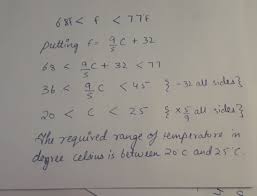 68F < f < 77F
putting f = 9/5 C + 32
68 < 9/5 C + 32 < 77
36 < 9/5 C < 45 {-32 all sides}
20 < C < 25 {× 5/9 all sides}
The required range of temperature in
degree celsius is between 20°C and 25°C.